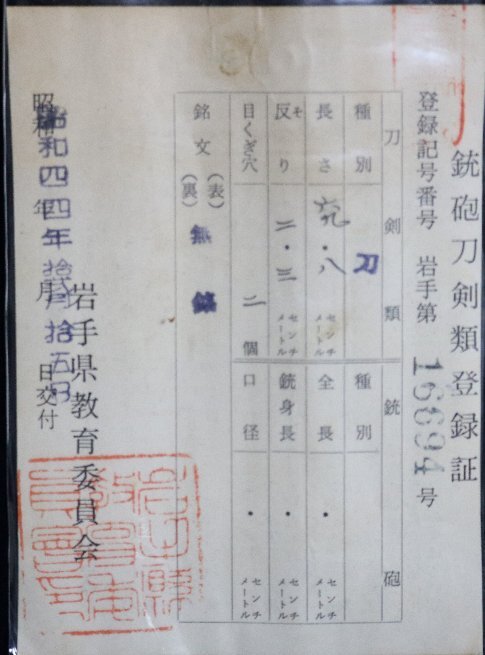 銃砲刀剣類登録証
登録記号番号 岩手第 16694 号
刀剣類 銃砲
種別 刀 種別
長さ 六九・八 センチメートル 全長 ・ センチメートル
反り そ 二・三 センチメートル 銃身長 ・ センチメートル
目くぎ穴 二 個 口径 ・ センチメートル
銘文 (表) 無
(裏) 銘
岩手県教育委員会
昭和四四年拾弐月拾五日
昭和 年 月 日交付